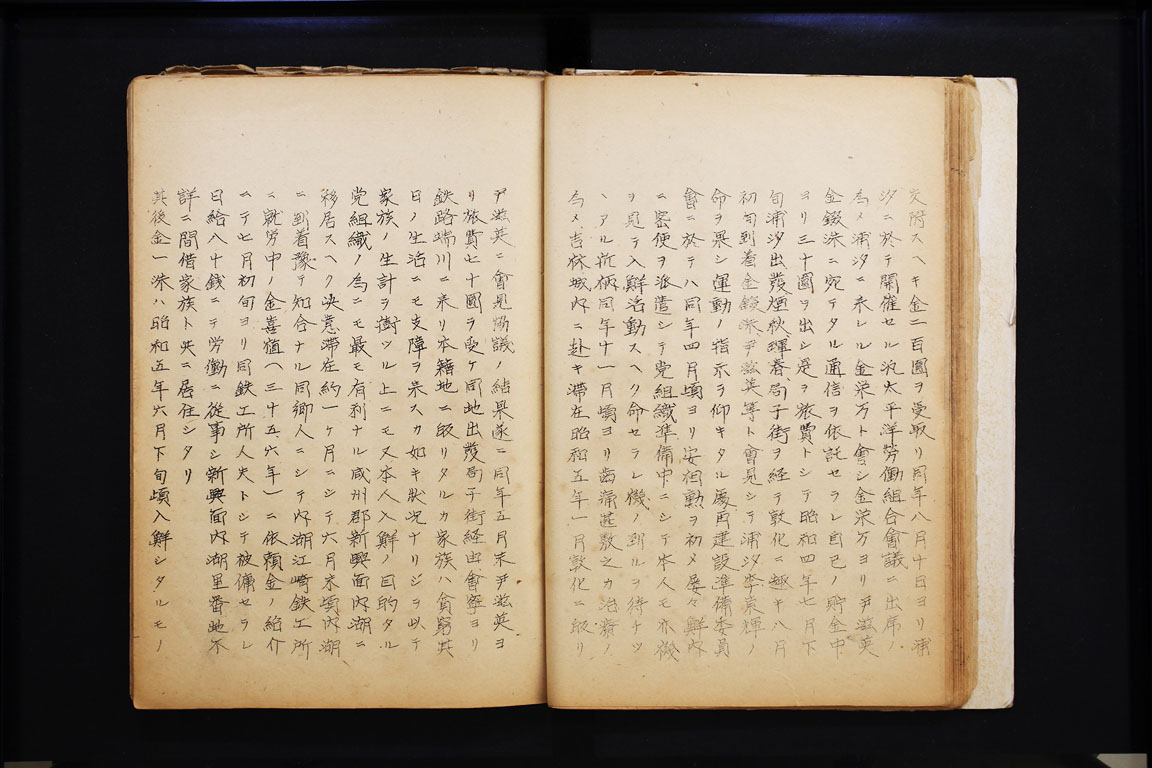 交附スヘキ金二百圓ヲ受取リ同年八月十日ヨリ浦
汐ニ於テ開催セル汎太平洋労働組合會議ニ出席ノ
為メ浦汐ニ来レル金栄万ト會シ金栄万ヨリ尹滋英
金錣洙ニ宛テタル通信ヲ依託セラレ自己ノ貯金中
ヨリ三十圓ヲ出シ是ヲ旅費トシテ昭和四年七月下
旬浦汐出發煙秋琿春局子街ヲ経テ敦化ニ趣キ八月
初旬到着金錣洙尹滋英等ト會見シテ浦汐李東輝ノ
命ヲ果シ運動ノ指示ヲ仰キタル處再建設準備委員
會ニ於テハ同年四月頃ヨリ安相勲ヲ初メ屡々鮮内
ニ密使ヲ派遣シテ党組織準備中ニシテ本人モ亦機
ヲ見テ入鮮活動スヘク命セラレ機ノ到ルヲ待チツ
ヽアル折柄同年十一月頃ヨリ歯痛甚敷之カ治療ノ
為メ吉林城内ニ赴キ滞在昭和五年一月敦化ニ皈リ
尹滋英ニ會見協議ノ結果遂ニ同年五月末尹滋英ヨ
リ旅費七十圓ヲ受ケ同地出發局子街経由會寧ヨリ
鉄路端川ニ来リ本籍地ニ皈リタルカ家族ハ貧窮其
日ノ生活ニモ支障ヲ来スカ如キ状況ナリシヲ以テ
家族ノ生計ヲ樹ツル上ニモ又本人入鮮ノ目的タル
党組織ノ為ニモ最モ有利ナル咸州郡新興面内湖ニ
移居スヘク決意滞在約一ヶ月ニシテ六月末頃内湖
ニ到着豫テ知合ナル同郷人ニシテ内湖江崎鉄工所
ニ就労中ノ金喜植（三十五六年）ニ依頼金ノ紹介
ニテ七月初旬ヨリ同鉄工所人夫トシテ被傭セラレ
日給八十銭ニテ労働ニ従事シ新興面内湖里番地不
詳ニ間借家族ト共ニ居住シタリ
其後金一洙ハ昭和五年六月下旬頃入鮮シタルモノ